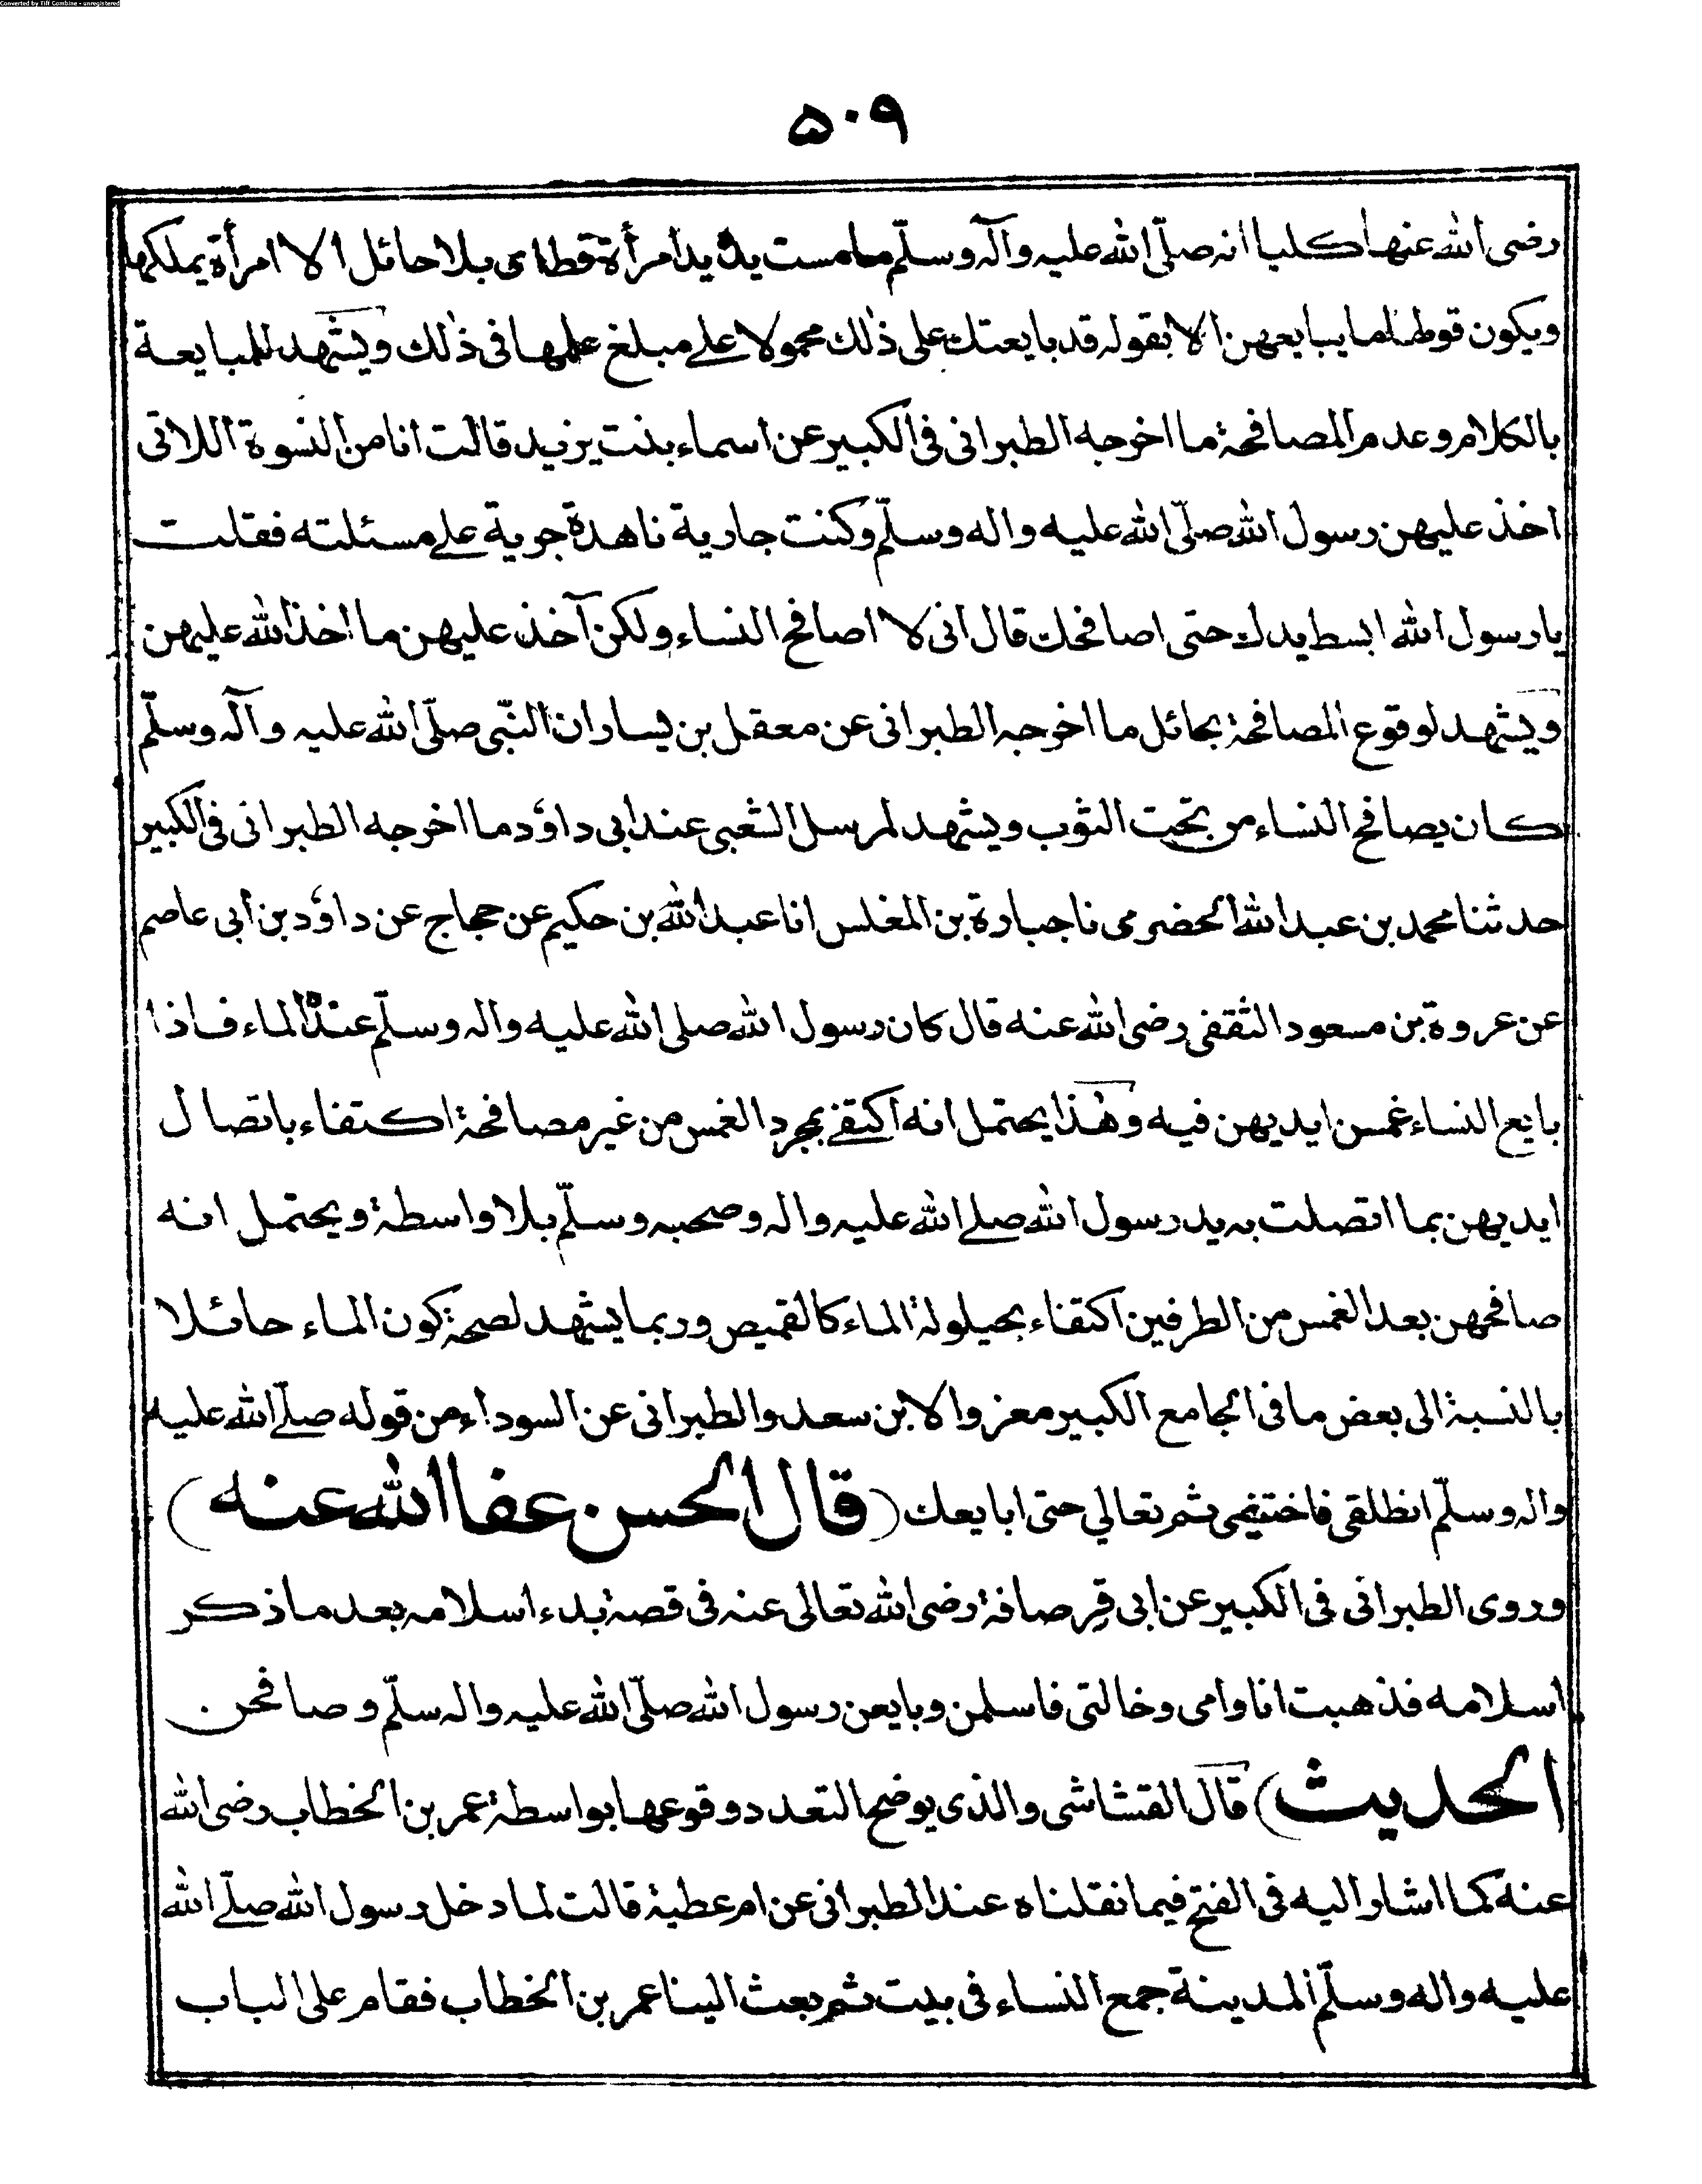 Converted by Tiff Combine - unregistered
۵۰۹
رضی الله عنها کلیا انه صلّی الله علیه وآله وسلّم مامست یده ید امرأة قط ای بلا حائل الا امرأة یملکها
ویکون قولها ما یبایعهن الا بقوله قد بایعتك علی ذٰلك محمولا علے مبلغ علمها فی ذٰلك ویشهد للمبایعة
بالکلام وعدم المصافحة ما اخرجه الطبرانی فی الکبیر عن اسماء بنت یزید قالت انا من النسوة اللاتی
اخذ علیهن رسول الله صلّی الله علیه واله وسلّم وکنت جاریة ناهدة جریة علے مسئلته فقلت
یا رسول الله ابسط یدك حتی اصافحك قال انی لا اصافح النساء ولکن آخذ علیهن ما اخذ الله علیهن
ویشهد لوقوع المصافحة بحائل ما اخرجه الطبرانی عن معقل بن یسار ان النّبی صلّی الله علیه وآله وسلّم
کان یصافح النساء من تحت الثوب ویشهد لمرسل الشعبی عند ابی داؤد ما اخرجه الطبرانی فی الکبیر
حدثنا محمد بن عبد الله الحضرمی نا جبارة بن المغلس انا عبد الله بن حکیم عن حجاج عن داؤد بن ابی عاصم
عن عروة بن مسعود الثقفی رضی الله عنه قال کان رسول الله صلی الله علیه واله وسلّم عنده الماء فاذا
بایع النساء غمسن ایدیهن فیه وهٰذا یحتمل انه اکتفے بمجرد الغمس من غیر مصافحة اکتفاء باتصال
ایدیهن بما اتصلت به ید رسول الله صلے الله علیه واله وصحبه وسلّم بلا واسطة ویحتمل انه
صافحهن بعد الغمس من الطرفین اکتفاء بحیلولة الماء کالقمیص وربما یشهد لصحة کون الماء حائلا
بالنسبة الی بعض ما فی الجامع الکبیر معزوا لابن سعد والطبرانی عن السوداء من قوله صلّے الله علیه
واله وسلّم انطلقی فاختضبی ثم تعالی حتی ابایعك (قال الحسن عفا الله عنه)
وروی الطبرانی فی الکبیر عن ابی قِرصافة رضی الله تعالی عنه فی قصة بدء اسلامه بعد ما ذکر
اسلامه فذهبت انا وامی وخالتی فاسلمن وبایعن رسول الله صلّی الله علیه واله سلّم وصافحن
الحدیث) قال القشاشی والذی یوضح التعدد وقوعها بواسطة عمر بن الخطاب رضی الله
عنه کما اشار الیه فی الفتح فیما نقلناه عند الطبرانی عن ام عطیة قالت لما دخل رسول الله صلّے الله
علیه واله وسلّم المدینة جمع النساء فی بیت ثم بعث الینا عمر بن الخطاب فقام علی الباب